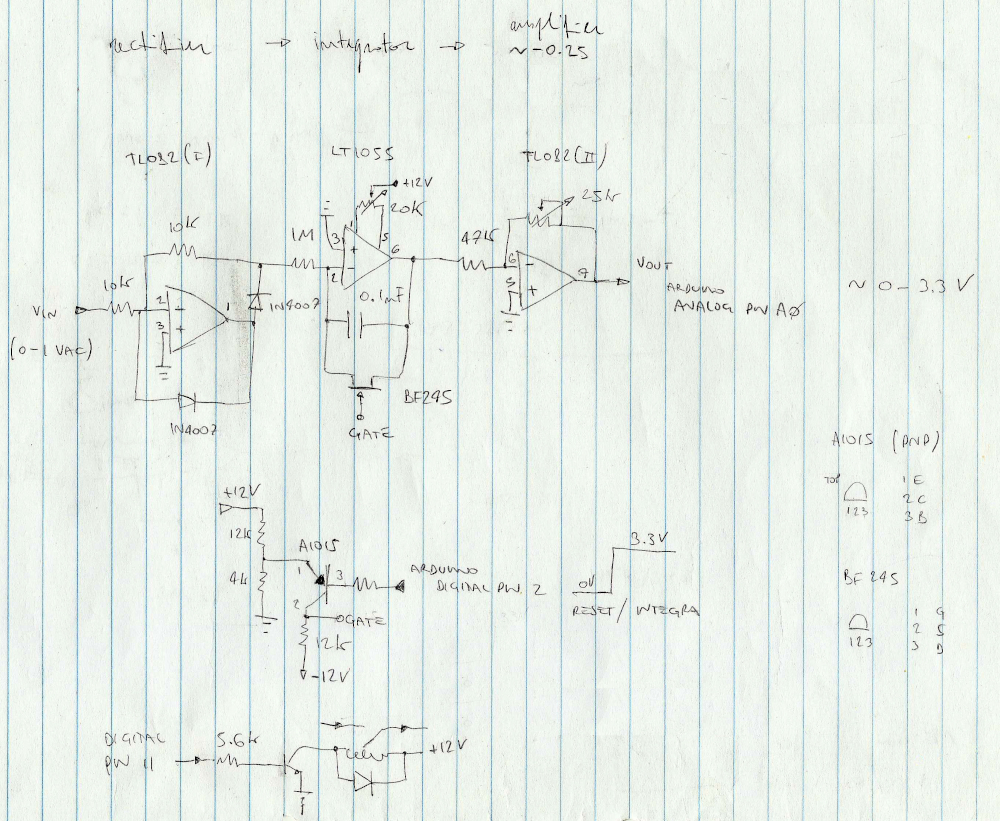 rectifier → integrator → amplifier
~ -0.25
TL082 (I)
LT1055
TL082 (II)
+12V
20K
25k
10k
1M
47k
1
5
3
+
6
2
-
6
-
5
+
7
10k
VIN
2
-
3
+
1
1N4007
0.1mF
VOUT
ARDUINO
ANALOG PIN A0
~ 0 - 3.3 V
(0-1 VAC)
1N4007
BF245
GATE
A1015 (PNP)
TOP
123
1 E
2 C
3 B
+12V
12k
A1015
1
3
ARDUINO
DIGITAL PIN 2
4k
2
GATE
12k
-12V
3.3V
0V
RESET / INTEGRA
BF245
123
1 G
2 S
3 D
DIGITAL
PIN 11
5.6k
+12V